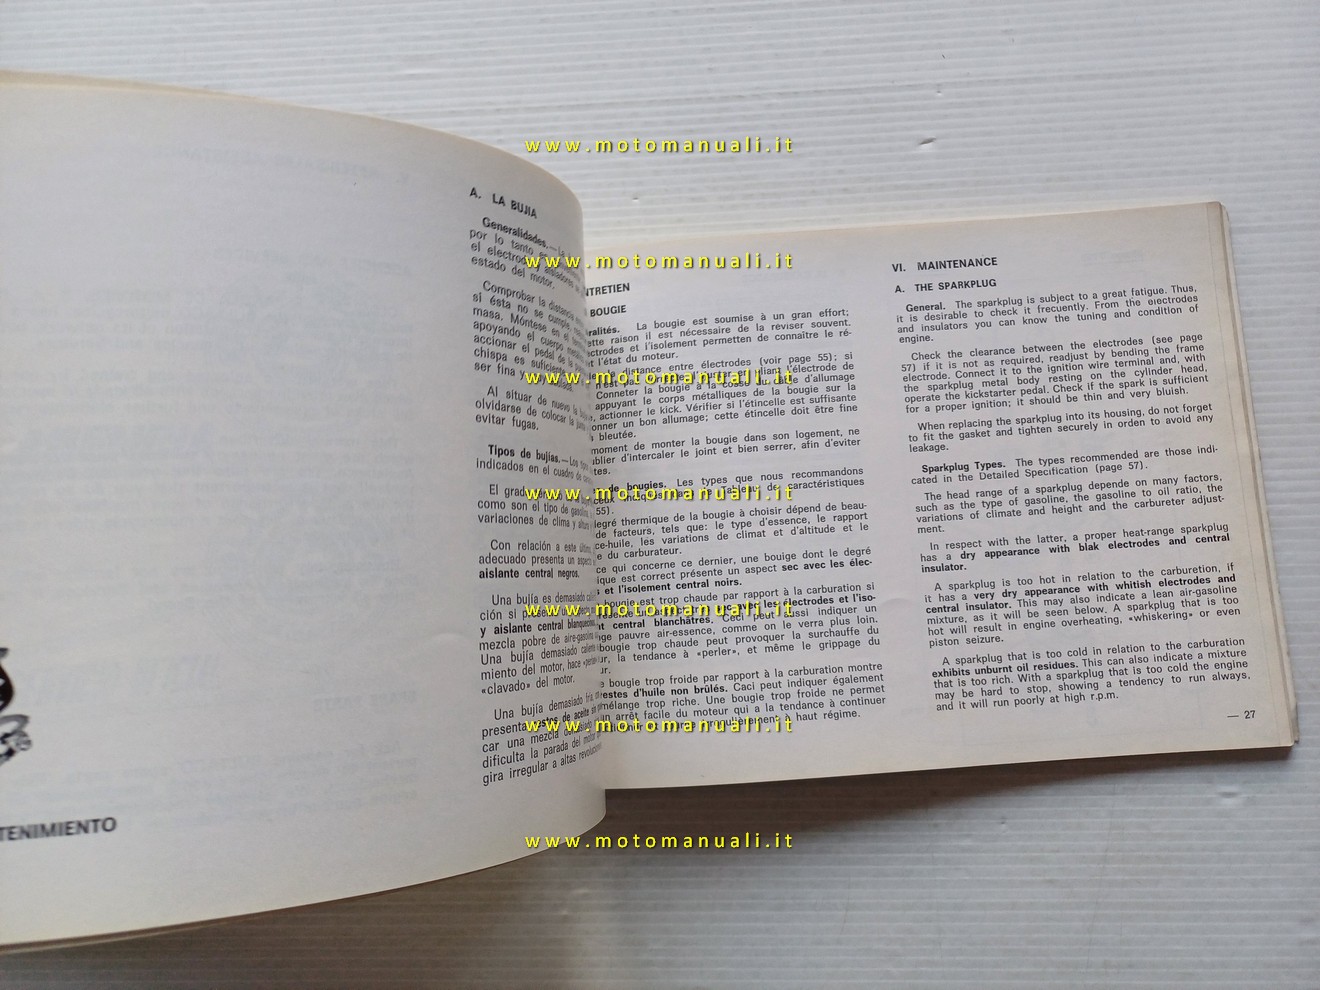 www.motomanuali.it
www.motomanuali.it
www.motomanuali.it
www.motomanuali.it
www.motomanuali.it
www.motomanuali.it
www.motomanuali.it
TENIMIENTO
A. LA BUJIA
Generalidades.—La
por lo tanto
el electrodo y aisladores
estado del motor.
Comprobar la distancia
si ésta no se cumple,
masa. Móntese en el
apoyando el cuerpo
accionar el pedal de
chispa es suficiente
ser fina y
Al situar de nuevo la
olvidarse de colocar la junta
evitar fugas.
Tipos de bujías.—Los
indicados en el cuadro de
El grado
como son el tipo de gasolina
variaciones de clima y altura
Con relación a este último,
adecuado presenta un aspecto
aislante central negros.
Una bujía es demasiado
ción si presenta
y aislante central blanquecinos
mezcla pobre de aire-gasolina
Una bujía demasiado caliente
miento del motor, hace
«clavado» del motor.
Una bujía demasiado fría
presenta restos de aceite sin
car una mezcla demasiado
dificulta la parada del motor
gira irregular a altas revoluciones
NTRETIEN
BOUGIE
ralités. La bougie est soumise à un gran effort;
ette raison il est nécessaire de la reviser souvent.
ctrodes et l'isolement permetten de connaître le ré-
t l'état du moteur.
distance entre électrodes (voir page 55); si
pliant l'électrode de
Conneter la bougie à la cosse du câble d'allumage
appuyant le corps métalliques de la bougie sur la
, actionner le kick. Vérifier si l'étincelle est suffisante
onner un bon allumage; cette étincelle doit être fine
s bleutée.
moment de monter la bougie dans son logement, ne
ublier d'intercaler le joint et bien serrer, afin d'eviter
tes.
de bougies. Les types que nous recommandons
ceux Tableau de caractéristiques
55).
degré thermique de la bougie à choisir dépend de beau-
de facteurs, tels que: le type d'essence, le rapport
ce-huile, les variations de climat et d'altitude et le
e du carburateur.
ce qui concerne ce dernier, une bouige dont le degré
ique est correct présente un aspect sec avec les élec-
s et l'isolement central noirs.
bougie est trop chaude par rapport à la carburation si
les électrodes et l'iso-
nt central blanchatres. Ceci peut aussi indiquer un
ge pauvre air-essence, comme on le verra plus loin.
bougie trop chaude peut provoquer la surchauffe du
ur, la tendance à «perler», et même le grippage du
ur.
e bougie trop froide par rapport à la carburation montre
restes d'huile non brûlés. Caci peut indiquer également
mélange trop riche. Une bougie trop froide ne permet
un arrêt facile du moteur qui a la tendance à continuer
irrégulièrement à haut régime.
VI. MAINTENANCE
A. THE SPARKPLUG
General. The sparkplug is subject to a great fatigue. Thus,
it is desirable to check it frecuently. From the electrodes
and insulators you can know the tuning and condition of
engine.
Check the clearance between the electrodes (see page
57) if it is not as required, readjust by bending the frame
electrode. Connect it to the ignition wire terminal and, with
the sparkplug metal body resting on the cylinder head,
operate the kickstarter pedal. Check if the spark is sufficient
for a proper ignition; it should be thin and very bluish.
When replacing the sparkplug into its housing, do not forget
to fit the gasket and tighten securely in orden to avoid any
leakage.
Sparkplug Types. The types recommended are those indi-
cated in the Detailed Specification (page 57).
The head range of a sparkplug depende on many factors,
such as the type of gasoline, the gasoline to oil ratio, the
variations of climate and height and the carbureter adjust-
ment.
In respect with the latter, a proper heat-range sparkplug
has a dry appearance with blak electrodes and central
insulator.
A sparkplug is too hot in relation to the carburetion, if
it has a very dry appearance with whitish electrodes and
central insulator. This may also indicate a lean air-gasoline
mixture, as it will be seen below. A sparkplug that is too
hot will result in engine overheating, «whiskering» or even
piston seizure.
A sparkplug that is too cold in relation to the carburation
exhibits unburnt oil residues. This can also indicate a mixture
that is too rich. With a sparkplug that is too cold the engine
may be hard to stop, showing a tendency to run always,
and it will run poorly at high r.p.m.
— 27